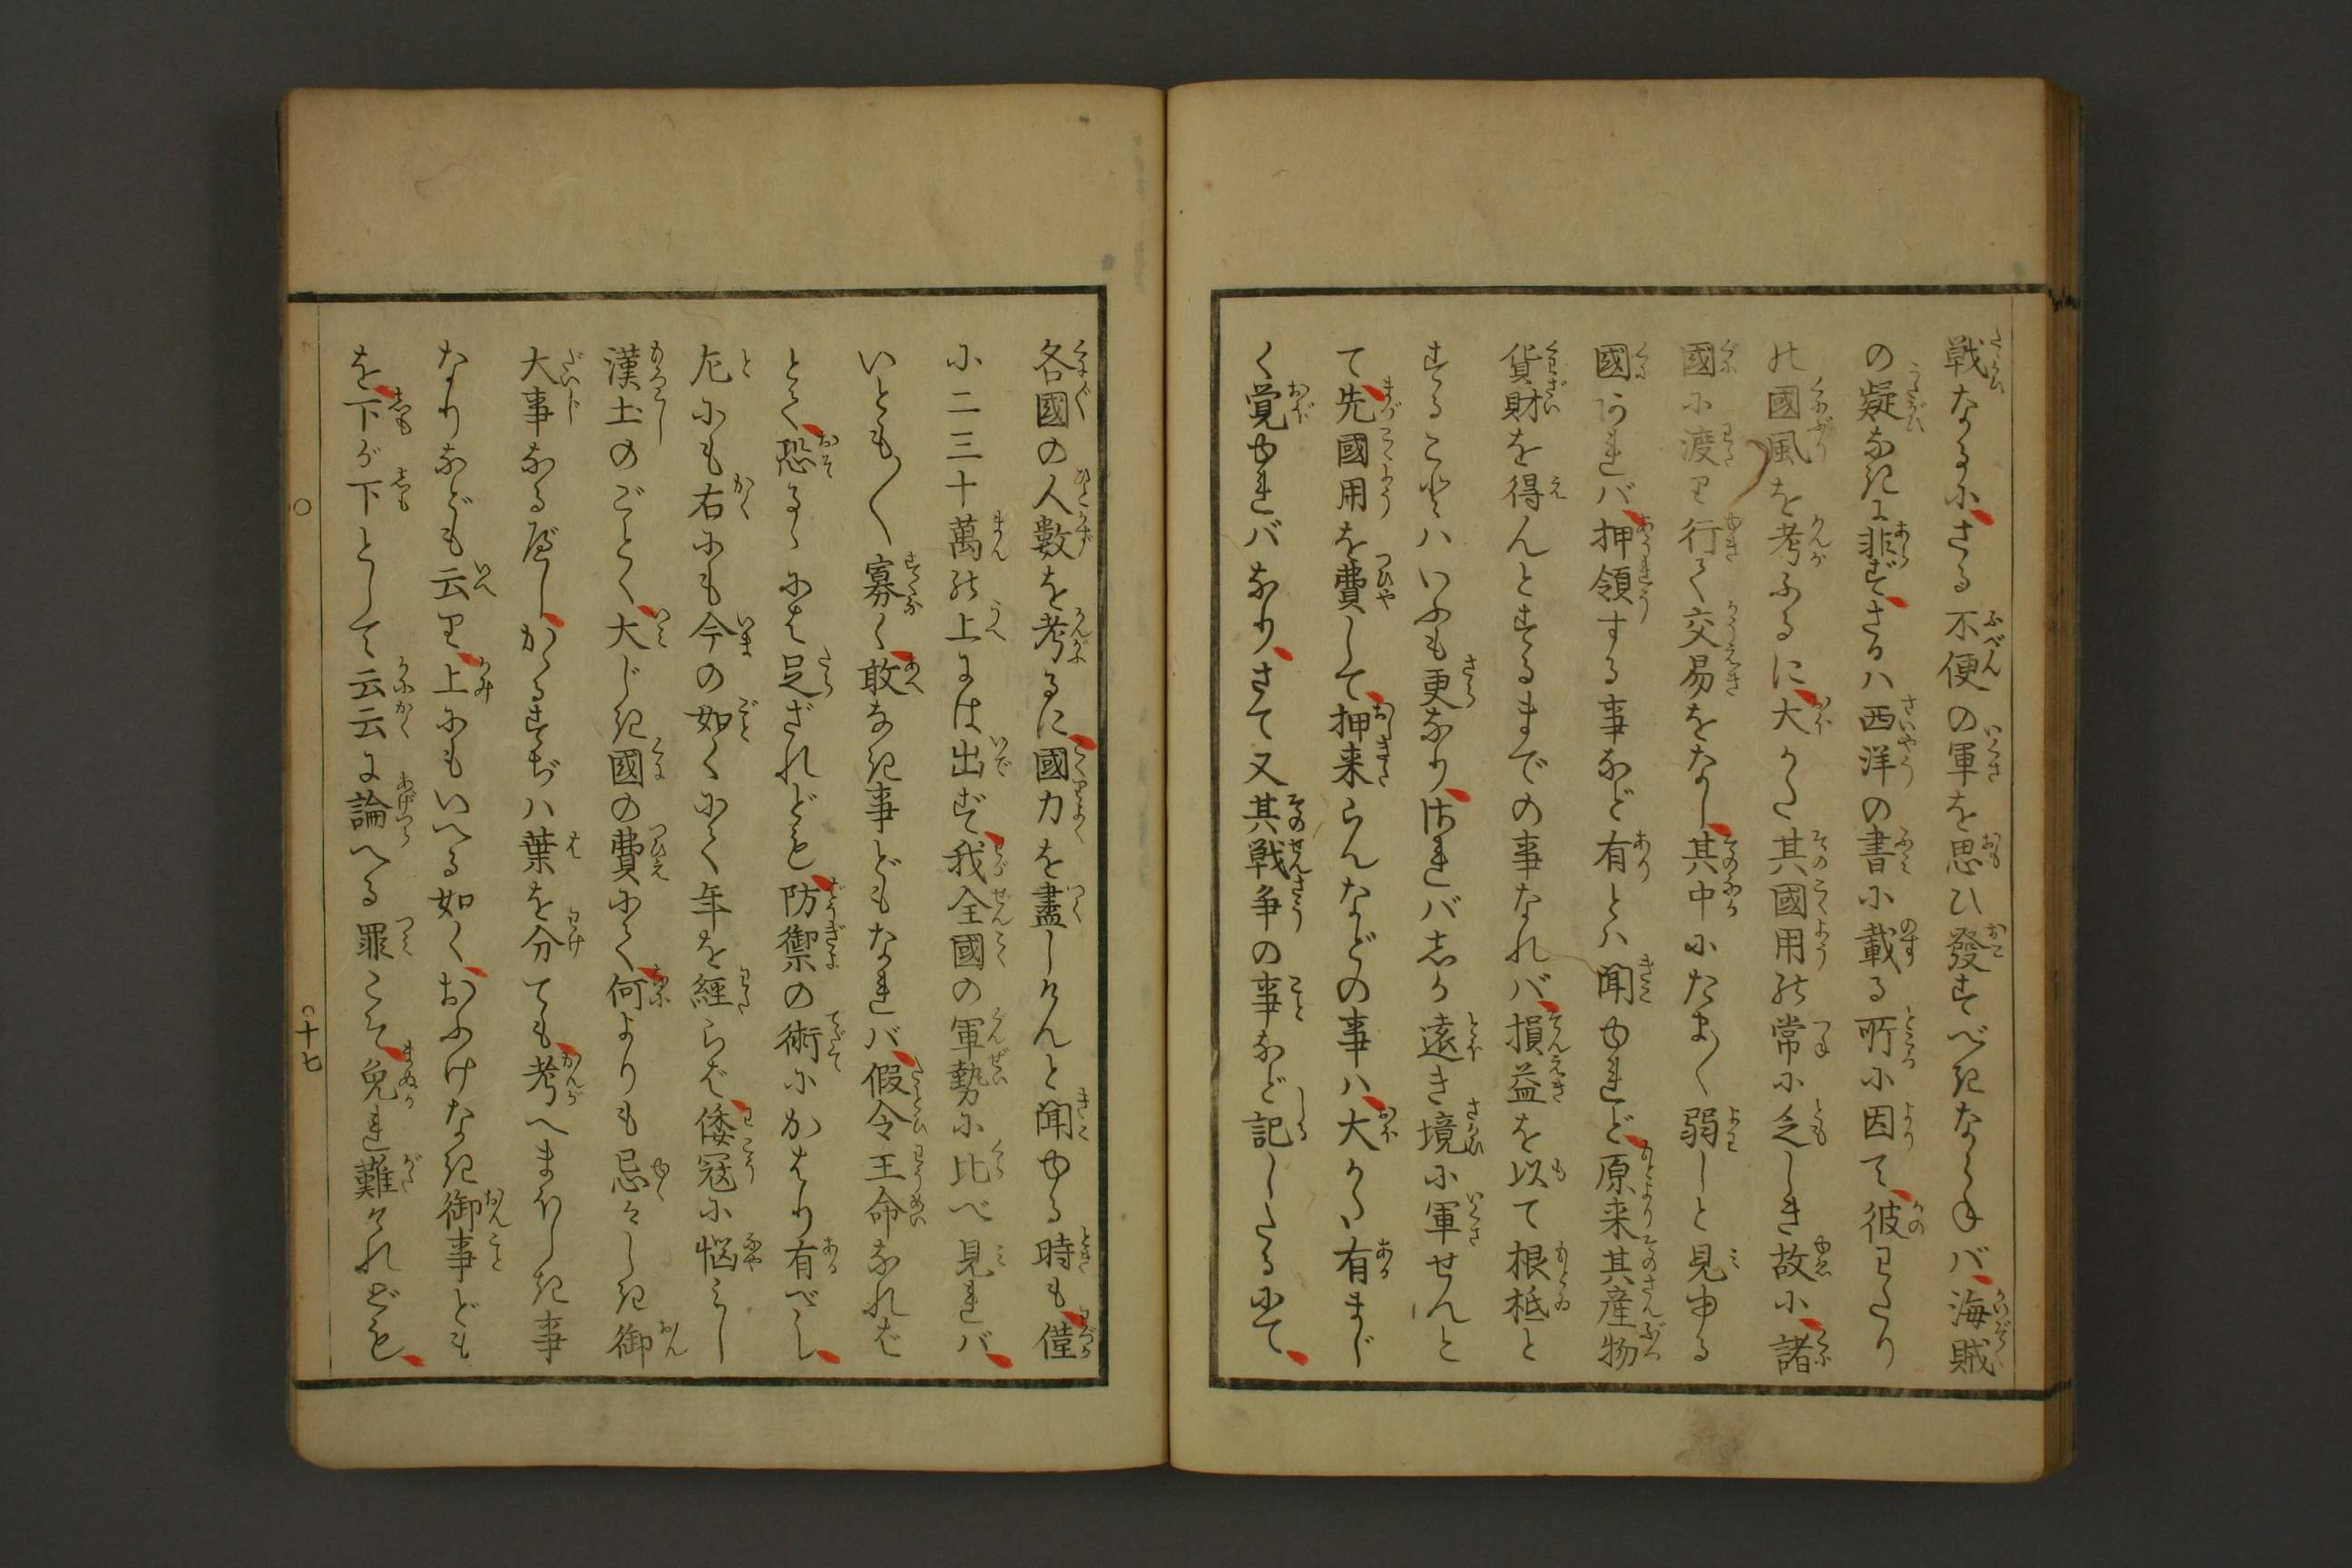 戦なるに、さる不便の軍を思ひ發すべきならねバ、海賊
の疑なきに非ず、さるハ西洋の書に載る所に因て、彼わたり
の國風を考ふるに、大かた其國用の常に乏しき故に、諸
國に渡り行て交易をなし、其中にたま〱弱しと見ゆる
國あれバ、押領する事など有とハ聞ゆれど、原来其産物
貨財を得んとするまでの事なれバ、損益を以て根柢と
することハいふも更なり、されバしか遠き境に軍せんと
て、先國用を費して、押来らんなどの事ハ、大かた有まじ
く覚ゆれバなり、さて又其戦争の事など記したるにて、
各國の人數を考るに、國力を盡しけんと聞ゆる時も、僅
に二三十萬の上には出ず、我全國の軍勢に比べ見れバ、
いとも〱寡く、敢なき事どもなれバ、假令王命なれば
とて、恐るゝには足ざれども、防禦の術にかはり有べし、
左にも右にも今の如くにて年を經らば、倭冦に悩みし
漢土のごとく、大じき國の費にて、何よりも忌々しき御
大事なる度し、かゝるすぢハ葉を分ても、考へまほしき事
なりなども云り、上にもいへる如く、おふけなき御事ども
を、下が下として云云に論へる罪こそ、免れ難けれども、
十七